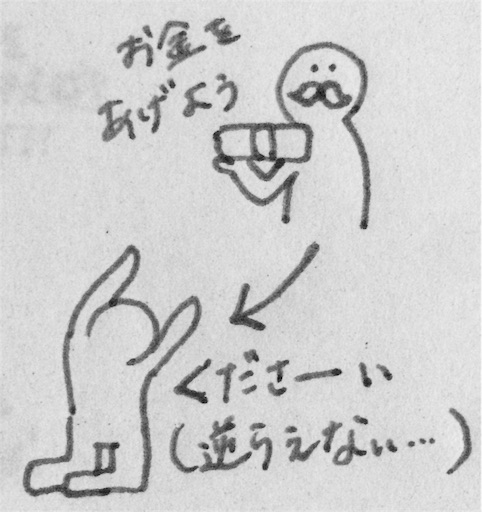 お金を
あげよう
くださーい
(逆らえない…)